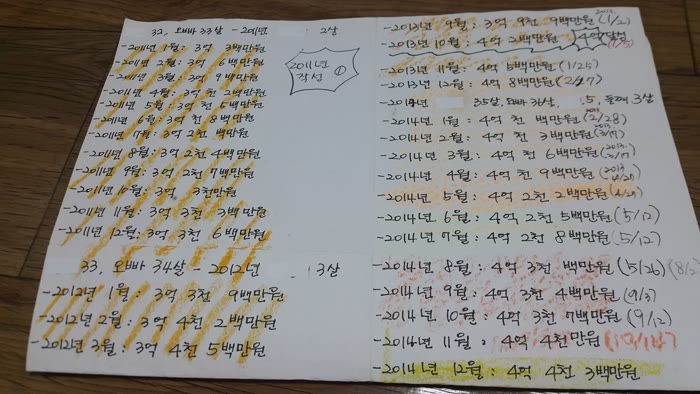 32, 오빠 33살 - 2011년 : 2살
-2011년 1월: 3억 3백만원
-2011년 2월: 3억 6백만원
-2011년 3월: 3억 9백만원
-2011년 4월: 3억 천 2백만원
-2011년 5월: 3억 천 5백만원
-2011년 6월: 3억 천 8백만원
-2011년 7월: 3억 2천 백만원
-2011년 8월: 3억 2천 4백만원
-2011년 9월: 3억 2천 7백만원
-2011년 10월: 3억 3천만원
-2011년 11월: 3억 3천 3백만원
-2011년 12월: 3억 3천 6백만원
2011년
작성 ①
33, 오빠 34살 - 2012년 : 3살
-2012년 1월: 3억 3천 9백만원
-2012년 2월: 3억 4천 2백만원
-2012년 3월: 3억 4천 5백만원
-2013년 9월: 3억 9천 9백만원 (1/2)
-2013년 10월: 4억 2백만원 4억달성
-2013년 11월: 4억 5백만원 (1/25)
-2013년 12월: 4억 8백만원 (2/27)
-2014년 35살, 오빠 36살, 5, 둘째 3살
-2014년 1월: 4억 천 백만원 (2/28)
-2014년 2월: 4억 천 3백만원
-2014년 3월: 4억 천 6백만원
-2014년 4월: 4억 천 9백만원
-2014년 5월: 4억 2천 2백만원
-2014년 6월: 4억 2천 5백만원 (5/12)
-2014년 7월: 4억 2천 8백만원 (5/12)
-2014년 8월: 4억 3천 백만원 (5/26)
-2014년 9월: 4억 3천 4백만원 (9/3)
-2014년 10월: 4억 3천 7백만원 (9/12)
-2014년 11월: 4억 4천만원
-2014년 12월: 4억 4천 3백만원